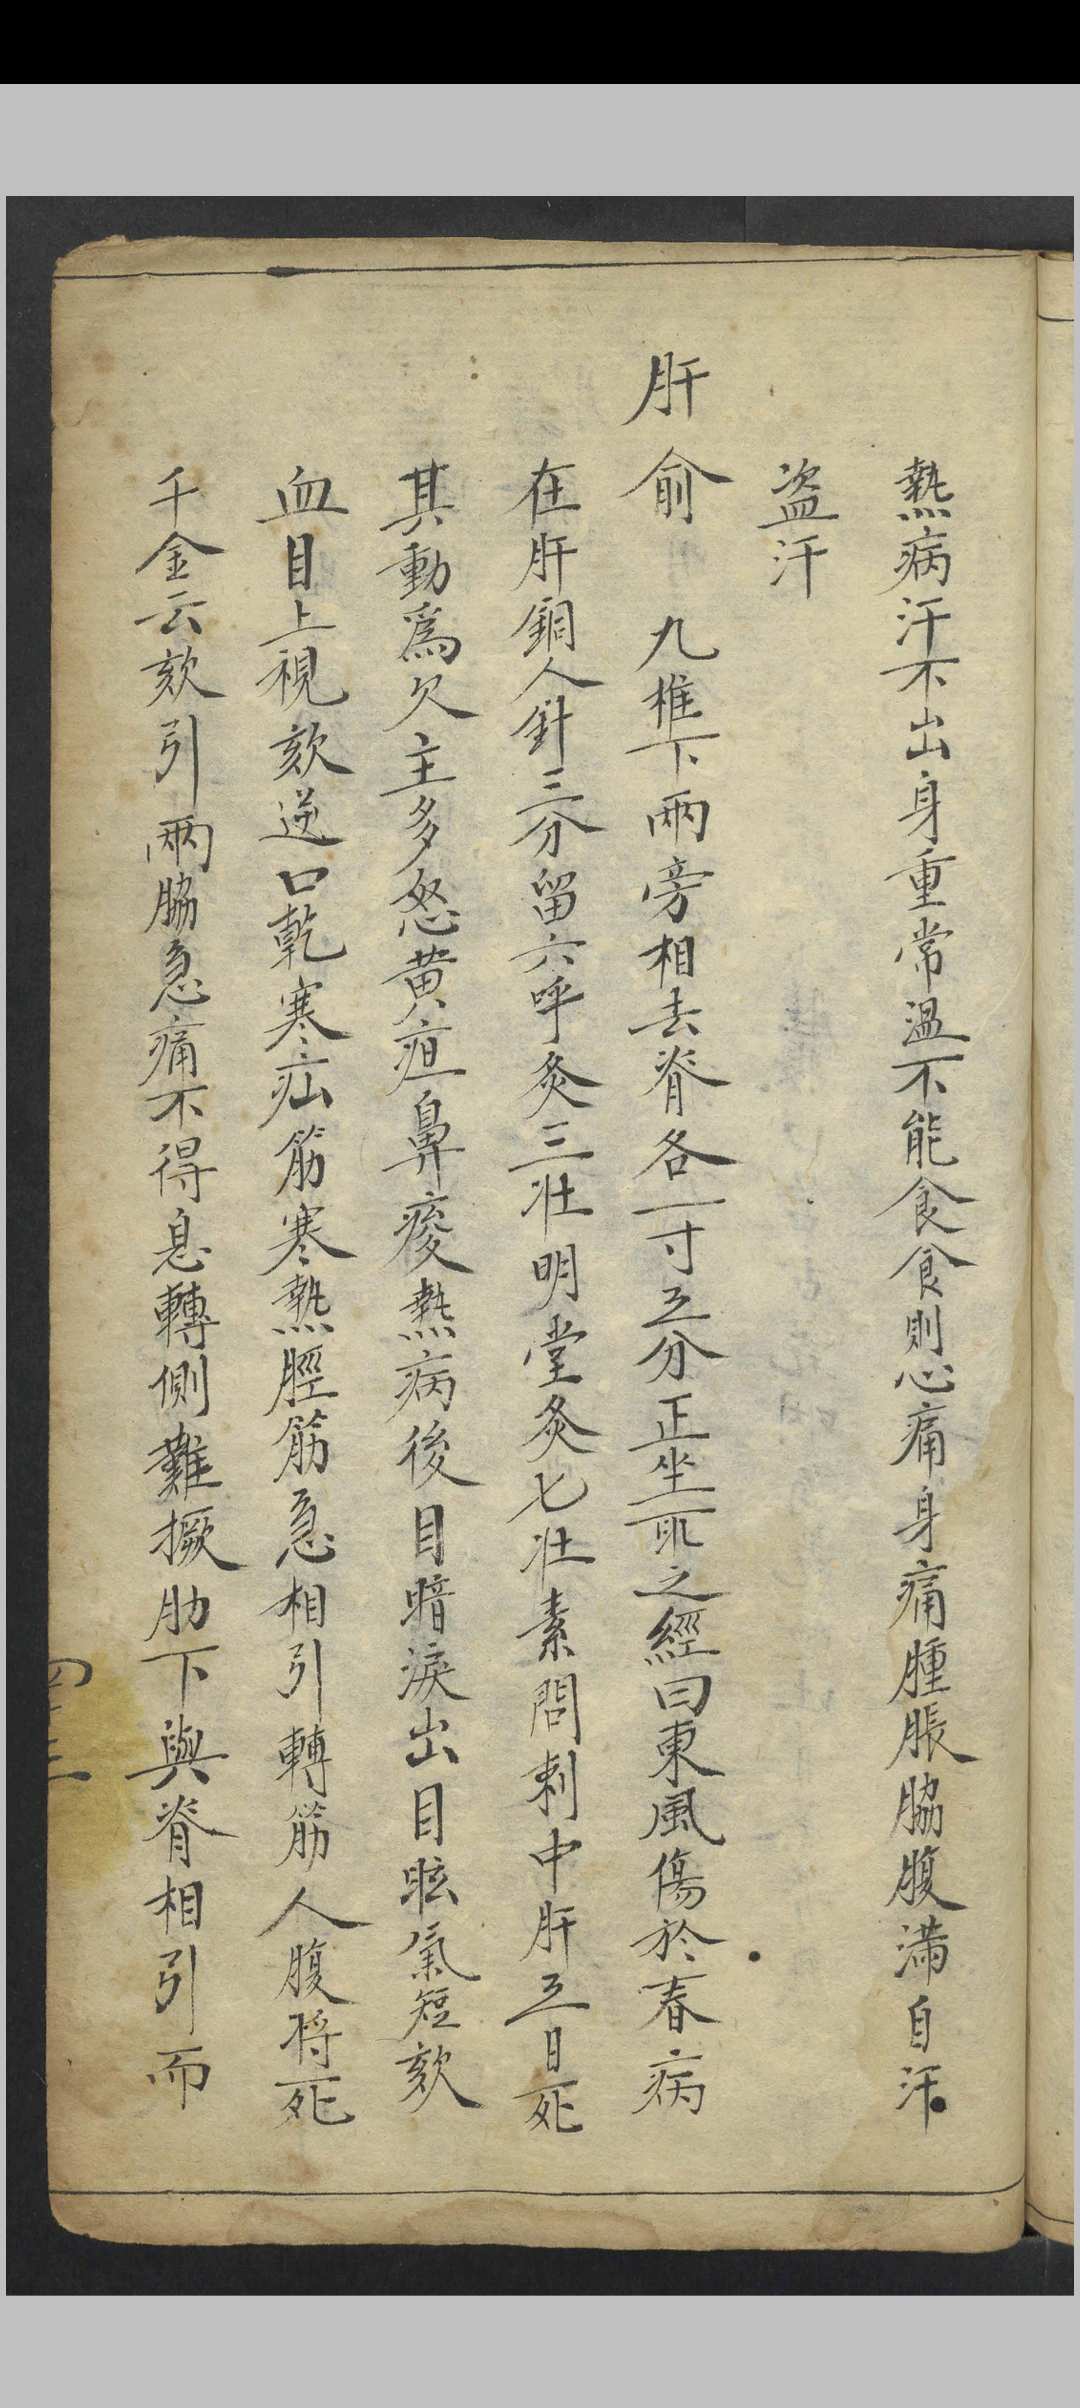 熱病汗不出身重常温不能食食則心痛身痛腫脹脇腹滿自汗
盗汗
肝俞 九椎下兩旁相去脊各一寸五分正坐取之經曰東風傷於春病
在肝銅人針三分留六呼灸三壯明堂灸七壯素問刺中肝五日死
其動爲欠主多怒黄疸鼻痠熱病後目暗淚出目眩氣短欬
血目上視欬逆口乾寒疝筋寒熱脛筋急相引轉筋人腹将死
千金云欬引兩脇急痛不得息轉側難撅肋下與脊相引而
四十二